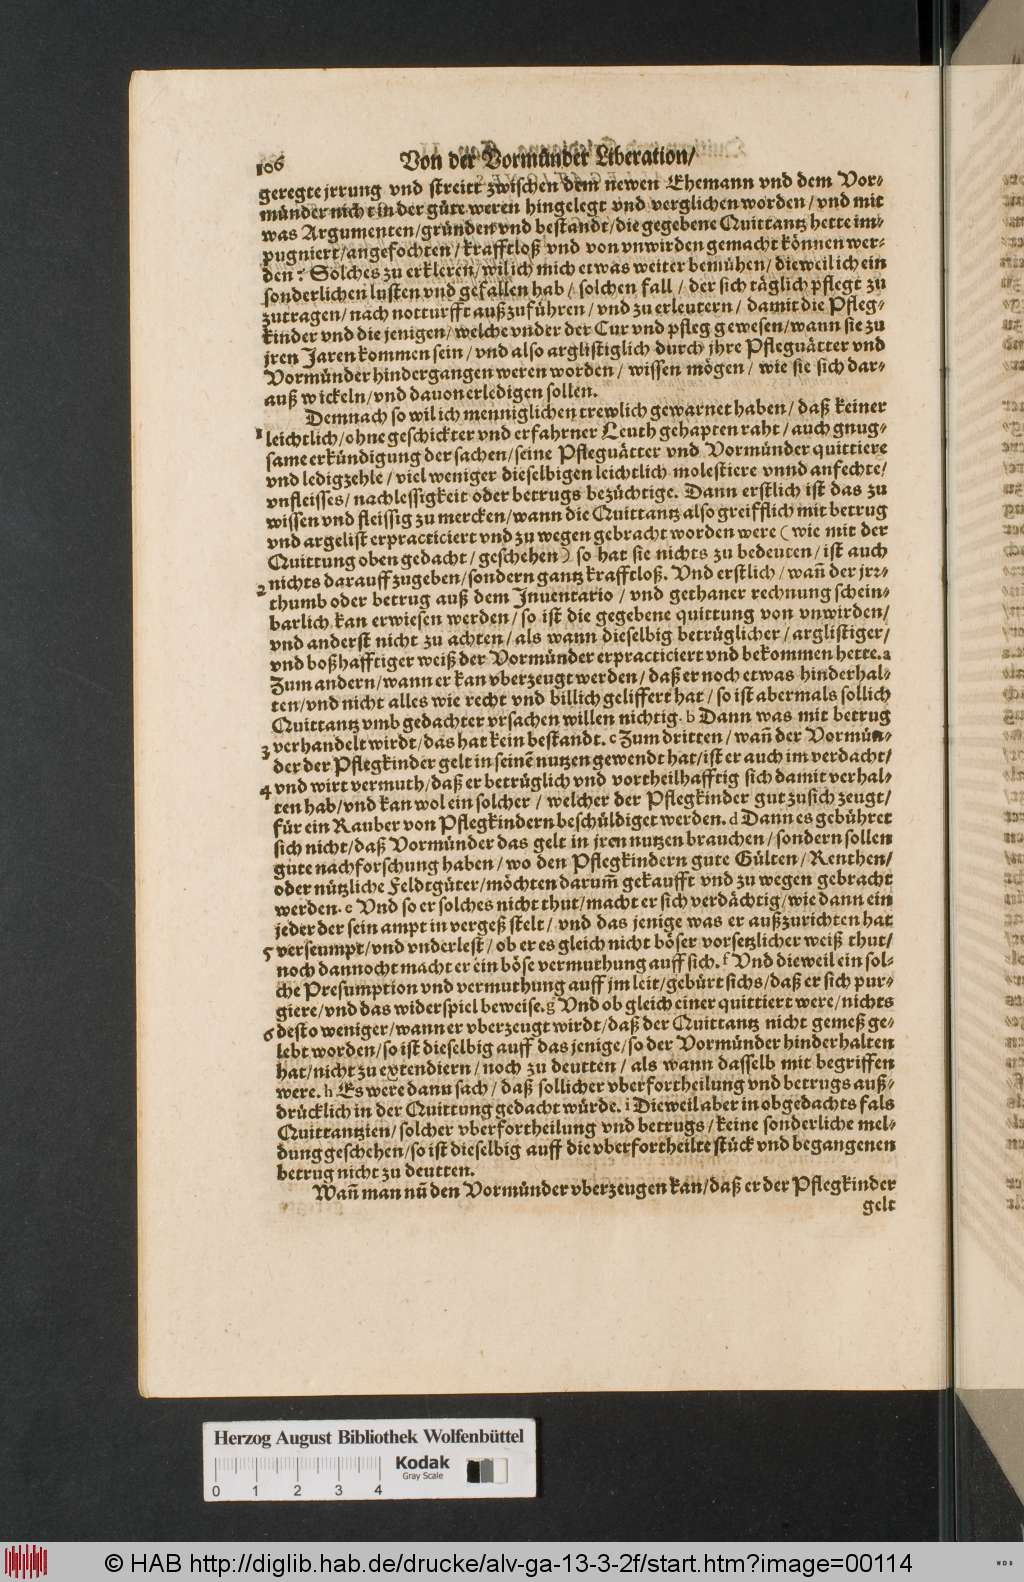 106 Von der Vormünder Liberation/
geregte jrrung vnd streitt zwischen dem newen Ehemann vnd dem Vor-
münder nicht in der güte weren hingelegt vnd verglichen worden/ vnd mit
was Argumenten/ gründen vnd bestandt/ die gegebene Quittantz hette im-
pugniert/ angefochten/ krafftloß vnd von vnwirden gemacht können wer-
den? Solches zu erkleren/ wil ich mich etwas weiter bemühen/ dieweil ich ein
sonderlichen lusten vnd gefallen hab/ solchen fall/ der sich täglich pflegt zu
zutragen/ nach notturfft außzuführen/ vnd zu erleutern/ damit die Pfleg-
kinder vnd die jenigen/ welche vnder der Cur vnd pfleg gewesen/ wann sie zu
jren Jaren kommen sein/ vnd also arglistiglich durch jhre Pflegvätter vnd
Vormünder hindergangen weren worden/ wissen mögen/ wie sie sich dar-
auß wickeln/ vnd dauon erledigen sollen.
Demnach so wil ich menniglichen trewlich gewarnet haben/ daß keiner
1 leichtlich/ ohne geschickter vnd erfahrner Leuth gehapten raht/ auch gnug-
same erkündigung der sachen/ seine Pflegvätter vnd Vormünder quittiere
vnd ledigzehle/ viel weniger dieselbigen leichtlich molestiere vnnd anfechte/
vnfleisses/ nachlessigkeit oder betrugs bezüchtige. Dann erstlich ist das zu
wissen vnd fleissig zu mercken/ wann die Quittantz also greifflich mit betrug
vnd argelist erpracticiert vnd zu wegen gebracht worden were (wie mit der
Quittung oben gedacht/ geschehen) so hat sie nichts zu bedeuten/ ist auch
2 nichts darauff zugeben/ sondern gantz krafftloß. Vnd erstlich/ wañ der jrr-
thumb oder betrug auß dem Inuentario/ vnd gethaner rechnung schein-
barlich kan erwiesen werden/ so ist die gegebene quittung von vnwirden/
vnd anderst nicht zu achten/ als wann dieselbig betrüglicher/ arglistiger/
vnd boßhafftiger weiß der Vormünder erpracticiert vnd bekommen hette. a
Zum andern/ wann er kan vberzeugt werden/ daß er noch etwas hinderhal-
ten/ vnd nicht alles wie recht vnd billich geliffert hat/ so ist abermals sollich
Quittantz vmb gedachter vrsachen willen nichtig. b Dann was mit betrug
3 verhandelt wirdt/ das hat kein bestandt. c Zum dritten/ wañ der Vormün-
der der Pflegkinder gelt in seinē nutzen gewendt hat/ ist er auch im verdacht/
4 vnd wirt vermuth/ daß er betrüglich vnd vortheilhafftig sich damit verhal-
ten hab/ vnd kan wol ein solcher/ welcher der Pflegkinder gut zusich zeugt/
für ein Rauber von Pflegkindern beschüldiget werden. d Dann es gebühret
sich nicht/ daß Vormünder das gelt in jren nutzen brauchen/ sondern sollen
gute nachforschung haben/ wo den Pflegkindern gute Gülten/ Renthen/
oder nützliche Feldtgüter/ möchten darum̄ gekaufft vnd zu wegen gebracht
werden. e Vnd so er solches nicht thut/ macht er sich verdächtig/ wie dann ein
jeder der sein ampt in vergeß stelt/ vnd das jenige was er außzurichten hat
5 verseumpt/ vnd vnderlest/ ob er es gleich nicht böser vorsetzlicher weiß thut/
noch dannocht macht er ein böse vermuthung auff sich. f Vnd dieweil ein sol-
che Presumption vnd vermuthung auff jm leit/ gebürt sichs/ daß er sich pur-
giere/ vnd das widerspiel beweise. g Vnd ob gleich einer quittiert were/ nichts
6 desto weniger/ wann er vberzeugt wirdt/ daß der Quittantz nicht gemeß ge-
lebt worden/ so ist dieselbig auff das jenige/ so der Vormünder hinderhalten
hat/ nicht zu extendiern/ noch zu deutten/ als wann dasselb mit begriffen
were. h Es were dann sach/ daß sollicher vberfortheilung vnd betrugs auß-
drücklich in der Quittung gedacht würde. i Dieweil aber in obgedachts fals
Quittantzien/ solcher vberfortheilung vnd betrugs/ keine sonderliche mel-
dung geschehen/ so ist dieselbig auff die vberfortheilte stück vnd begangenen
betrug nicht zu deutten.
Wañ man nū den Vormünder vberzeugen kan/ daß er der Pflegkinder
gelt
Herzog August Bibliothek Wolfenbüttel
Kodak
Gray Scale
0 1 2 3 4
© HAB http://diglib.hab.de/drucke/alv-ga-13-3-2f/start.htm?image=00114